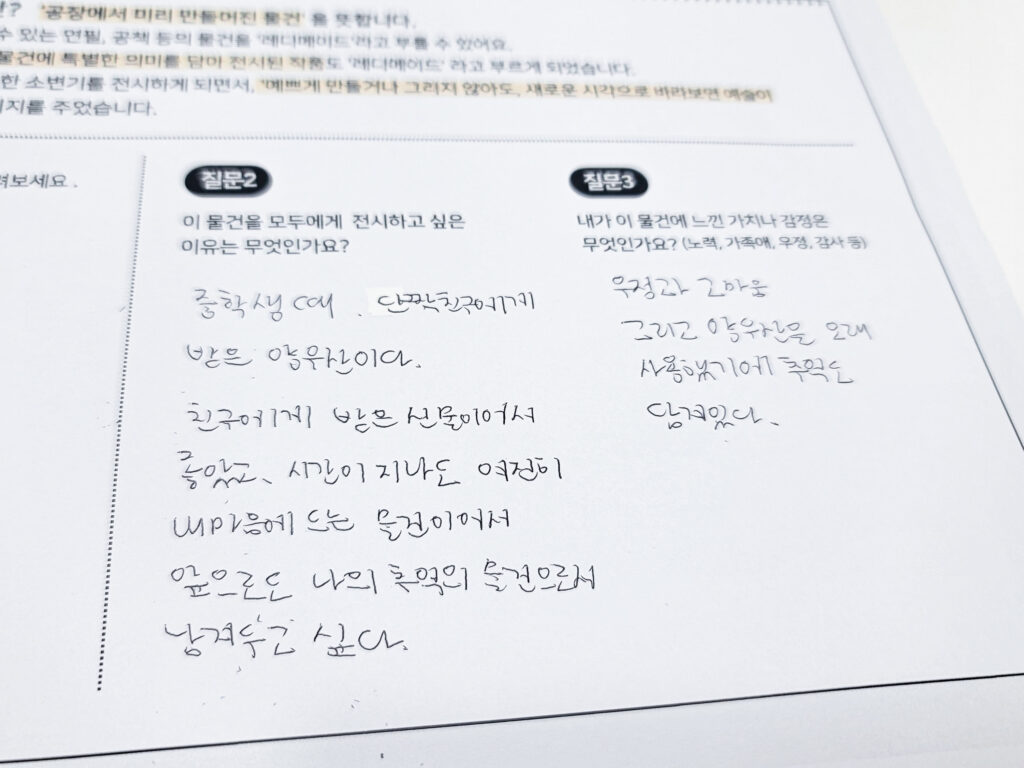 '공장에서 미리 만들어진 물건' 을 뜻합니다.
수 있는 연필, 공책 등의 물건을 '레디메이드'라고 부를 수 있어요.
물건에 특별한 의미를 담아 전시된 작품도 '레디메이드' 라고 부르게 되었습니다.
한 소변기를 전시하게 되면서, '예쁘게 만들거나 그리지 않아도, 새로운 시각으로 바라보면 예술이
지를 주었습니다.
려보세요.
질문2
이 물건을 모두에게 전시하고 싶은
이유는 무엇인가요?
중학생 때 단짝친구에게
받은 양우산이다.
친구에게 받은 선물이어서
좋았고, 시간이 지나도 여전히
내마음에 드는 물건이어서
앞으로도 나의 추억의 물건으로서
남겨두고 싶다.
질문3
내가 이 물건에 느낀 가치나 감정은
무엇인가요? (노력, 가족애, 우정, 감사 등)
우정과 고마움
그리고 양우산을 오래
사용했기에 추억도
담겨있다.